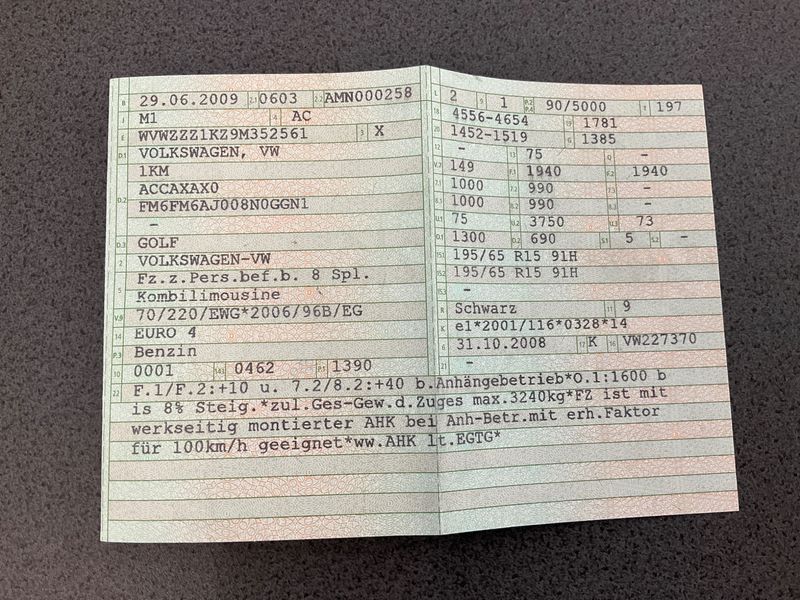 B 29.06.2009 2.1 0603 2.2 AMN000258
J M1 4 AC
E WVWZZZ1KZ9M352561 3 X
D.1 VOLKSWAGEN, VW
1KM
D.2 ACCAXAX0
FM6FM6AJ008N0GGN1
-
D.3 GOLF
2 VOLKSWAGEN-VW
5 Fz.z.Pers.bef.b. 8 Spl.
Kombilimousine
V.9 70/220/EWG*2006/96B/EG
14 EURO 4
P.3 Benzin
10 0001 14.1 0462 P.1 1390
L 2 9 1 P.2 P.4 90/5000 T 197
18 4556-4654 19 1781
20 1452-1519 G 1385
12 - 13 75 Q -
V.7 149 F.1 1940 F.2 1940
7.1 1000 7.2 990 7.3 -
8.1 1000 8.2 990 8.3 -
U.1 75 U.2 3750 U.3 73
O.1 1300 O.2 690 S.1 5 S.2 -
15.1 195/65 R15 91H
15.2 195/65 R15 91H
15.3 -
R Schwarz 11 9
K e1*2001/116*0328*14
6 31.10.2008 17 K 16 VW227370
21 -
22 F.1/F.2:+10 u. 7.2/8.2:+40 b.Anhängebetrieb*O.1:1600 b
is 8% Steig.*zul.Ges-Gew.d.Zuges max.3240kg*FZ ist mit
werkseitig montierter AHK bei Anh-Betr.mit erh.Faktor
für 100km/h geeignet*ww.AHK lt.EGTG*